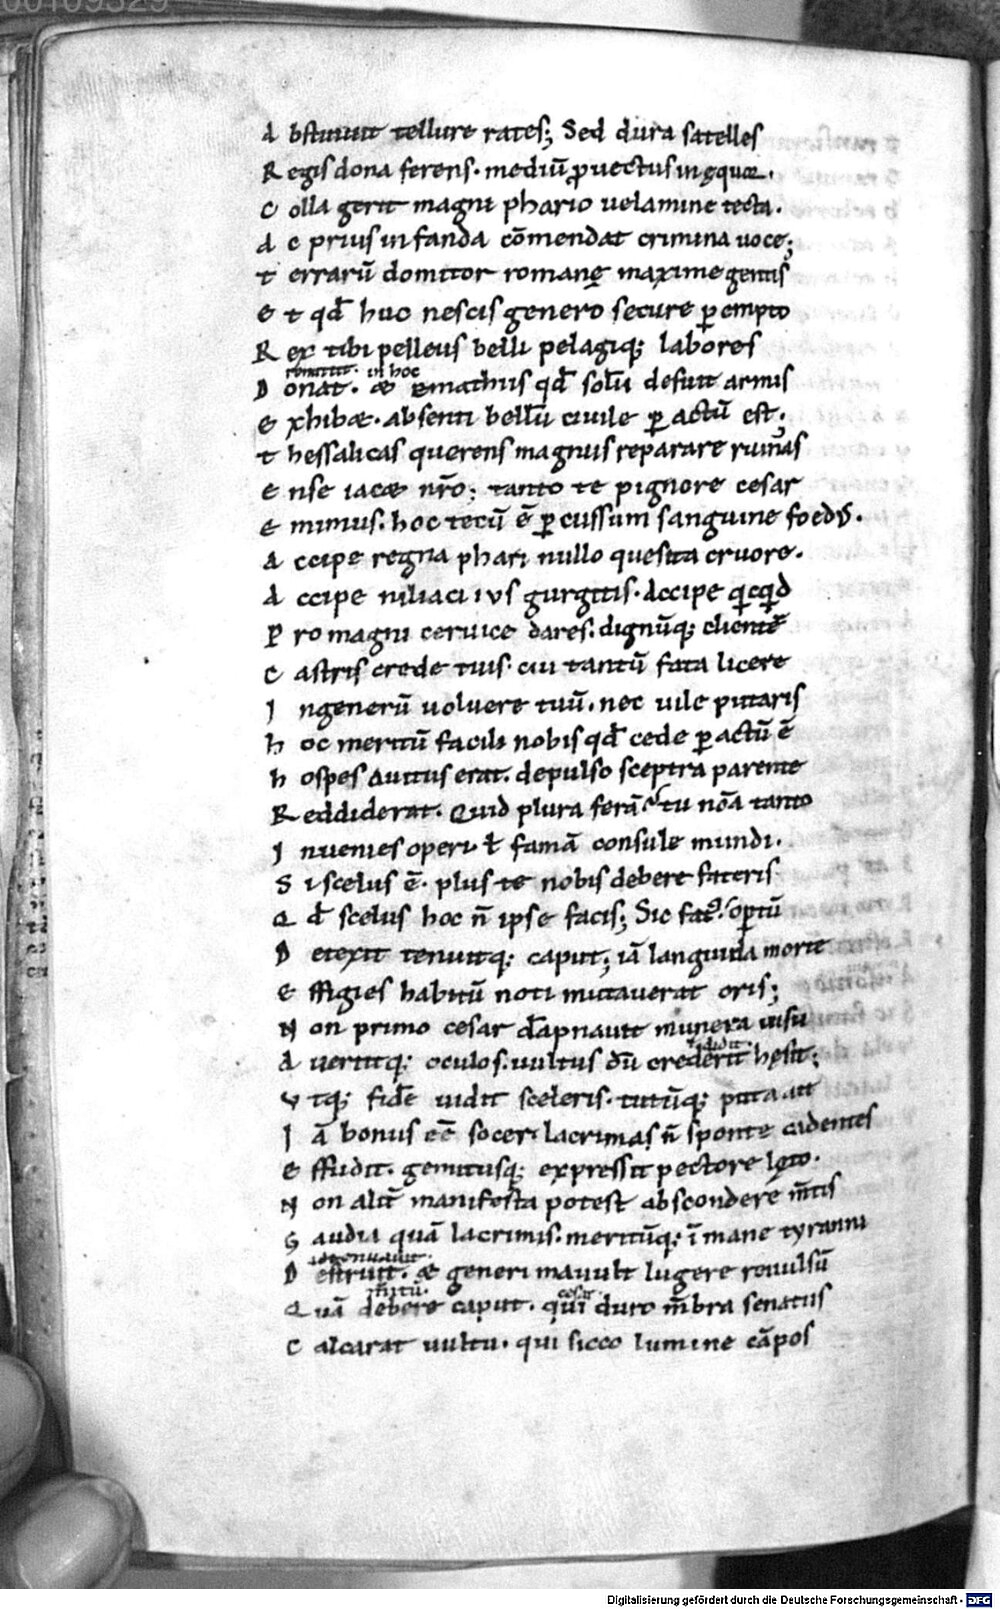 00109329
A bstinuit tellure rates; Sed dura satelles
R egis dona ferens. mediū ꝓuectus in ęquor.
C olla gerit magni phario uelamine tecta.
A c prius infanda cōmendat crimina uoce;
T errarū domitor romanę maxime gentis
E t qđ huc nescis genero secure ꝑempto
R ex tibi pelleus belli pelagiq; labores
D onat. æ emathiis qđ solū defuit armis
E xhibæ. absenti bellū ciuile ꝑactū est;
T hessalicas querens magnus reparare ruinas
E nse iacæ nr̄o; tanto te pignore cesar
E mimus. hoc tecū ē ꝑcussum sanguine foedus.
A ccipe regna phari nullo quesita cruore.
A ccipe niliaci ius gurgitis. Accipe qicqid
P ro magni ceruice dares. dignūq; clientē
C astris crede tuis. cui tantū fata licere
I ngenerū uoluere tuū. nec uile putaris
H oc meritū facili nobis qđ cede ꝑactū ē
H ospes auitus erat. depulso sceptra parente
R eddiderat. Quid plura ferā tu nōa tanto
I nuenies operi. ł famā consule mundi.
S i scelus ē. plus te nobis debere fateris
Q đ scelus hoc n̄ ipse facis; Sic fat' optū
D etexit tenuitq; caput; iā languida morte
E ffigies habitū noti mutauerat oris;
N on primo cesar dāpnauit munera uisu
A uertitq; oculos. uultus dū crederit hęsit;
V tq; fidē uidit sceleris. tutūq; putauit
I ā bonus eē socer. lacrimas n̄ sponte cadentes
E ffudit. gemitusq; expressit pectore lęto.
N on alit̄ manifesta potest abscondere m̄tis
G audia quā lacrimis. meritūq; īmane tyranni
D estruit. æ generi mauult lugere reuulsū
Q uā debere caput. qui duro m̄bra senatus
C alcarat uultu. qui sicco lumine cāpos
Digitalisierung gefördert durch die Deutsche Forschungsgemeinschaft - DFG